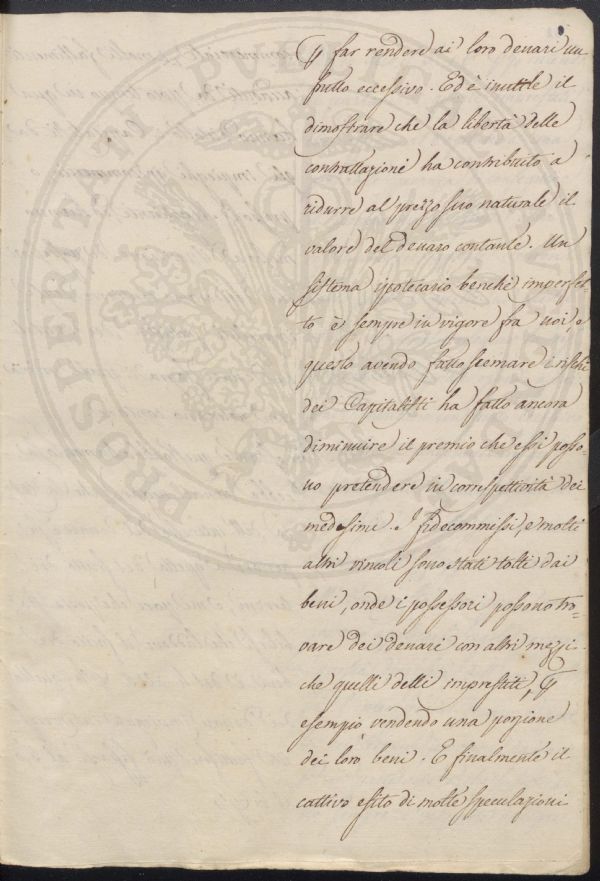 p far rendere ai loro denari un
frutto eccessivo. Ed è inutile il
dimostrare che la libertà delle
contrattazioni ha contribuito a
ridurre al prezzo suo naturale il
valore del denaro contante. Un
sistema ipotecario benchè imperfet-
to è sempre in vigore fra noi, e
questo avendo fatto scemare i rischi
dei Capitalisti ha fatto ancora
diminuire il premio che essi posso-
no pretendere in correspettività dei
medesimi. I Fidecommissi, e molti
altri vincoli sono stati tolti dai
beni, onde i possessori possono tro-
vare dei denari con altri mezzi
che quelli delli imprestiti, p
esempio vendendo una porzione
dei loro beni. E finalmente il
cattivo esito di molte speculazioni
PROSPERITATI PUBLICAE